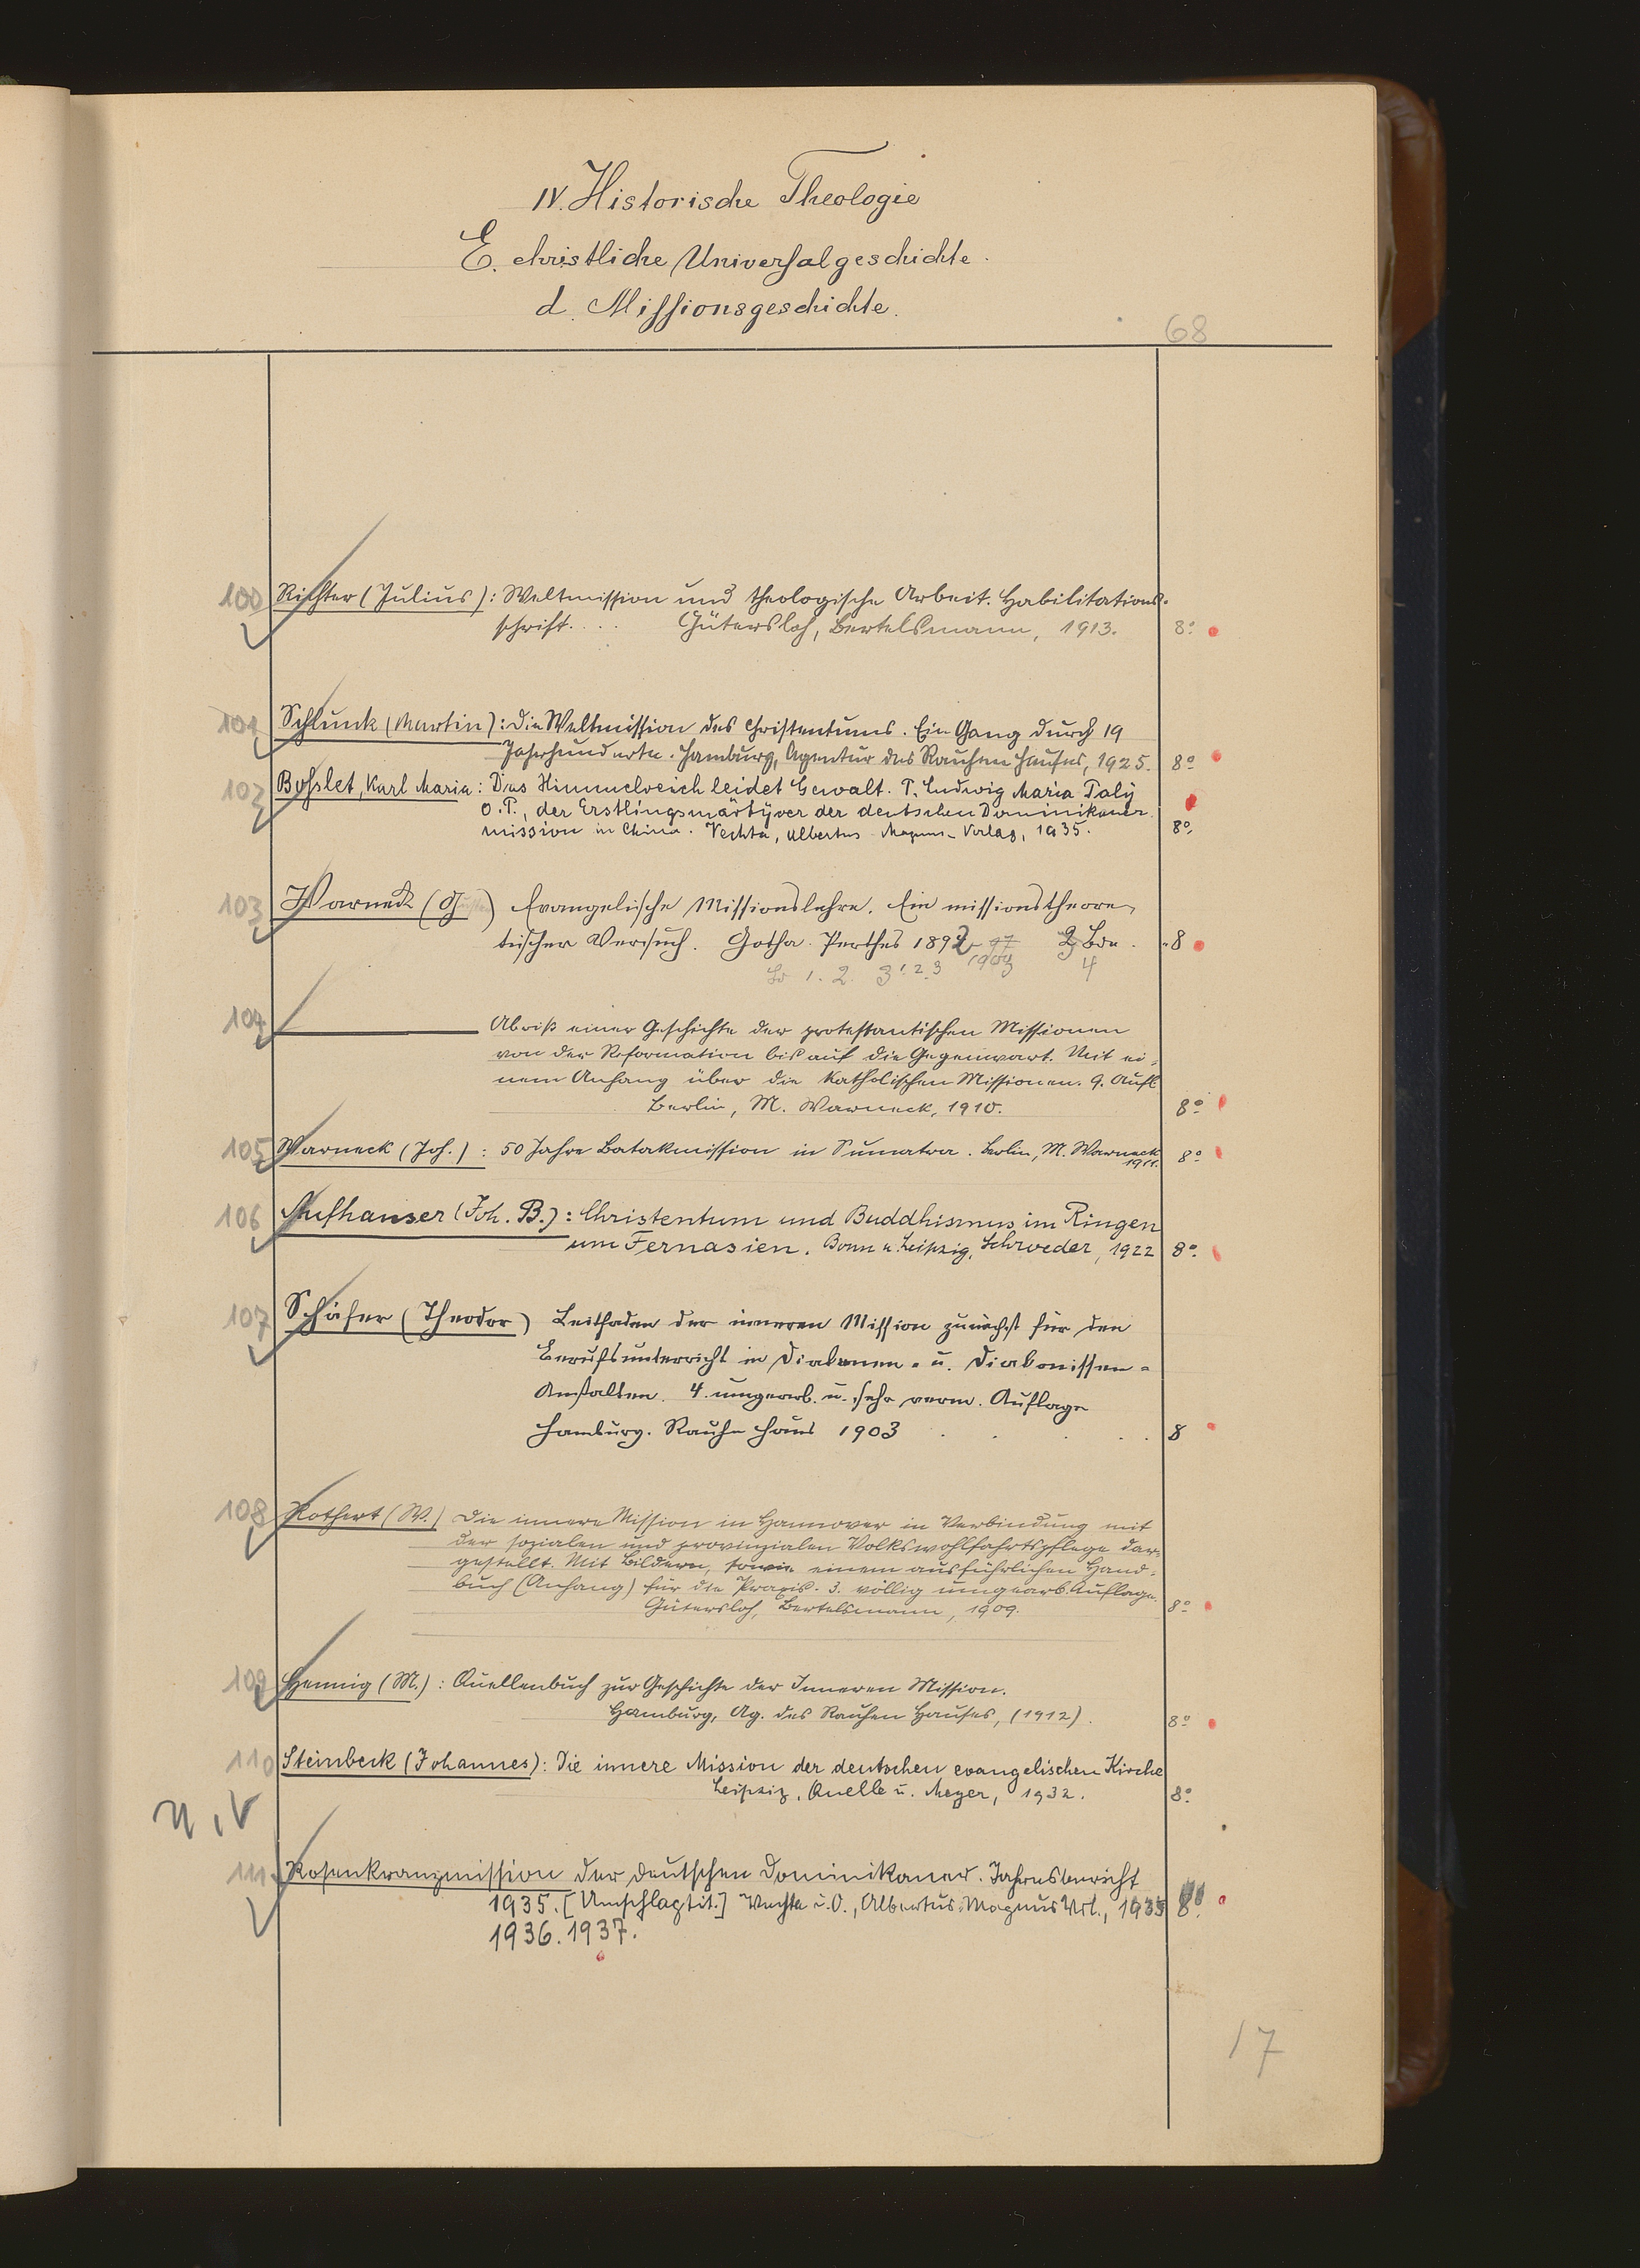 IV. Historische Theologie
E. christliche Universalgeschichte.
d. Missionsgeschichte.
68
100 Richter (Julius): Weltmission und theologische Arbeit. Habilitations-
schrift. . . . Gütersloh, Bertelsmann, 1913. 8°
101 Schlunk (Martin): Die Weltmission des Christentums. Ein Gang durch 19
Jahrhunderte. Hamburg, Agentur des Rauhen Hauses, 1925. 8°
102 Bosslet, Karl Maria: Das Himmelreich leidet Gewalt. P. Ludwig Maria Paly
O.P., der Erstlingsmärtyrer der deutschen Dominikaner-
mission in China. Vechta, Albertus-Magnus-Verlag, 1935. 8°
103 Warneck (Gustav) Evangelische Missionslehre. Ein missionstheore-
tischer Versuch. Gotha. Perthes 1892-97 Bde. 8
1903 4
1. 2. 3 1.2.3
104 Abriß einer Geschichte der protestantischen Missionen
von der Reformation bis auf die Gegenwart. Mit ei-
nem Anhang über die katholischen Missionen. 9. Aufl.
Berlin, M. Warneck, 1910. 8°
105 Warneck (Joh.): 50 Jahre Batakmission in Sumatra. Berlin, M. Warneck 8°
1911.
106 Aufhauser (Joh. B.): Christentum und Buddhismus im Ringen
um Fernasien. Bonn u. Leipzig, Schroeder, 1922 8°
107 Schäfer (Theodor) Leitfaden der inneren Mission zunächst für den
Berufsunterricht in Diakonen- u. Diakonissen-
Anstalten. 4. umgearb. u. sehr verm. Auflage
Hamburg. Rauhe Haus 1903 . . . . 8
108 Rothert (W.) Die innere Mission in Hannover in Verbindung mit
der sozialen und provinzialen Volkswohlfahrtspflege dar-
gestellt. Mit Bildern, sowie einem ausführlichen Hand-
buch (Anhang) für die Praxis. 3. völlig umgearb. Auflage.
Gütersloh, Bertelsmann, 1909. 8°
109 Hennig (M.): Quellenbuch zur Geschichte der Inneren Mission.
Hamburg, Ag. des Rauhen Hauses, (1912). 8°
110 Steinbeck (Johannes): Die innere Mission der deutschen evangelischen Kirche
Leipzig, Quelle u. Meyer, 1932. 8°
111 Rosenkranzmission der deutschen Dominikaner. Jahresbericht
1935. [Umschlagtit.] Vechta i. O., Albertus-Magnus Verl., 1935 8°
1936. 1937.
17